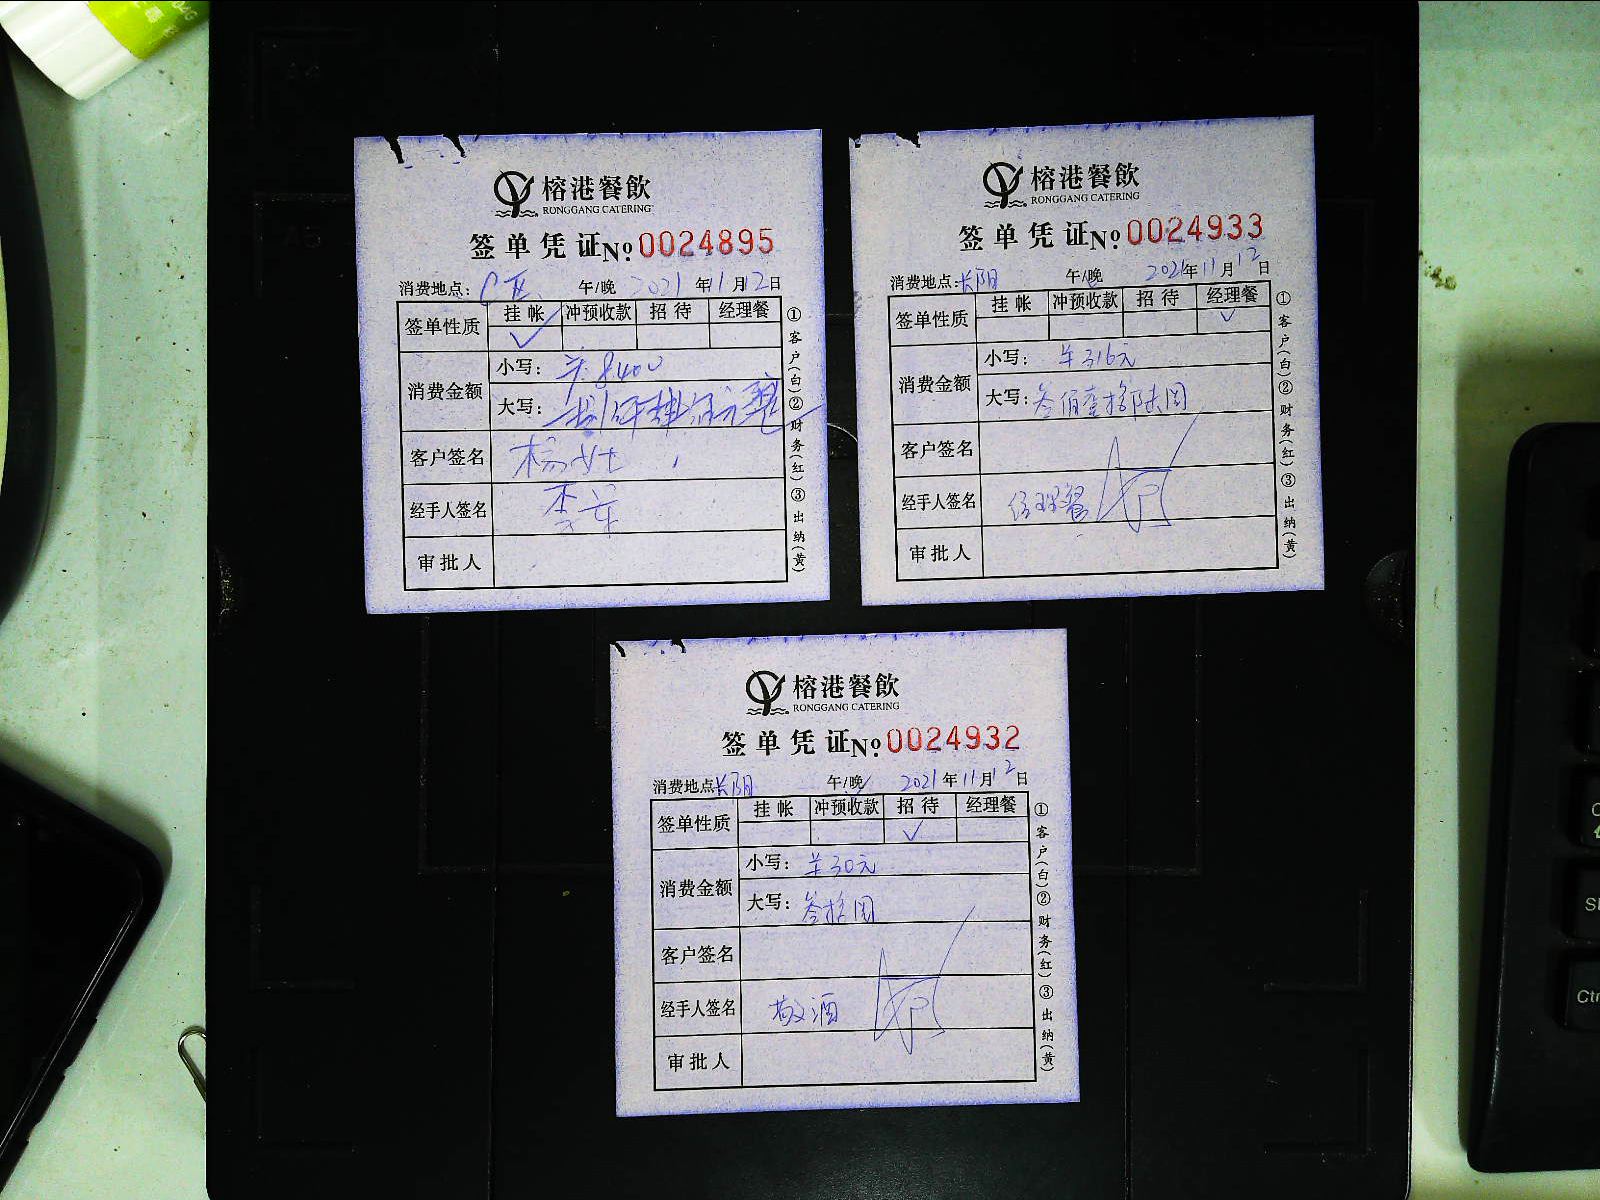 榕港餐飲
RONGGANG CATERING
签单凭证No 0024895
消费地点: 午/晚 2021年11月12日
签单性质 挂帐 冲预收款 招待 经理餐
✓
消费金额
小写: ¥:8400
大写: 捌仟肆佰元整
客户签名 杨女士
经手人签名
审批人
①客户(白)②财务(红)③出纳(黄)
榕港餐飲
RONGGANG CATERING
签单凭证No 0024933
消费地点:长阳 午/晚 2021年11月12日
签单性质 挂帐 冲预收款 招待 经理餐
✓
消费金额
小写: ¥316元
大写: 叁佰壹拾陆圆
客户签名
经手人签名 经理餐
审批人
①客户(白)②财务(红)③出纳(黄)
榕港餐飲
RONGGANG CATERING
签单凭证No 0024932
消费地点长阳 午/晚 2021年11月12日
签单性质 挂帐 冲预收款 招待 经理餐
✓
消费金额
小写: ¥30元
大写: 叁拾圆
客户签名
经手人签名 敬酒
审批人
①客户(白)②财务(红)③出纳(黄)
Ctr